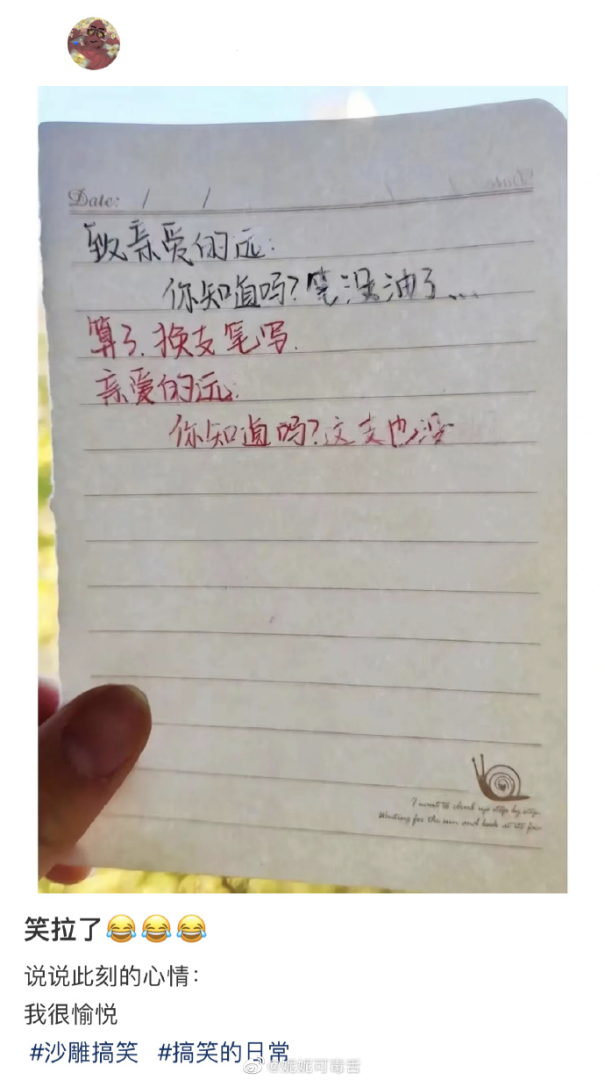 Date: / /
致亲爱的远:
你知道吗?笔没油了...
算了.换支笔写.
亲爱的远:
你知道吗?这支也没
I want to climb up step by step
Waiting for the sun and look at its
笑拉了😂😂😂
说说此刻的心情：
我很愉悦
#沙雕搞笑 #搞笑的日常
@妮妮可毒舌